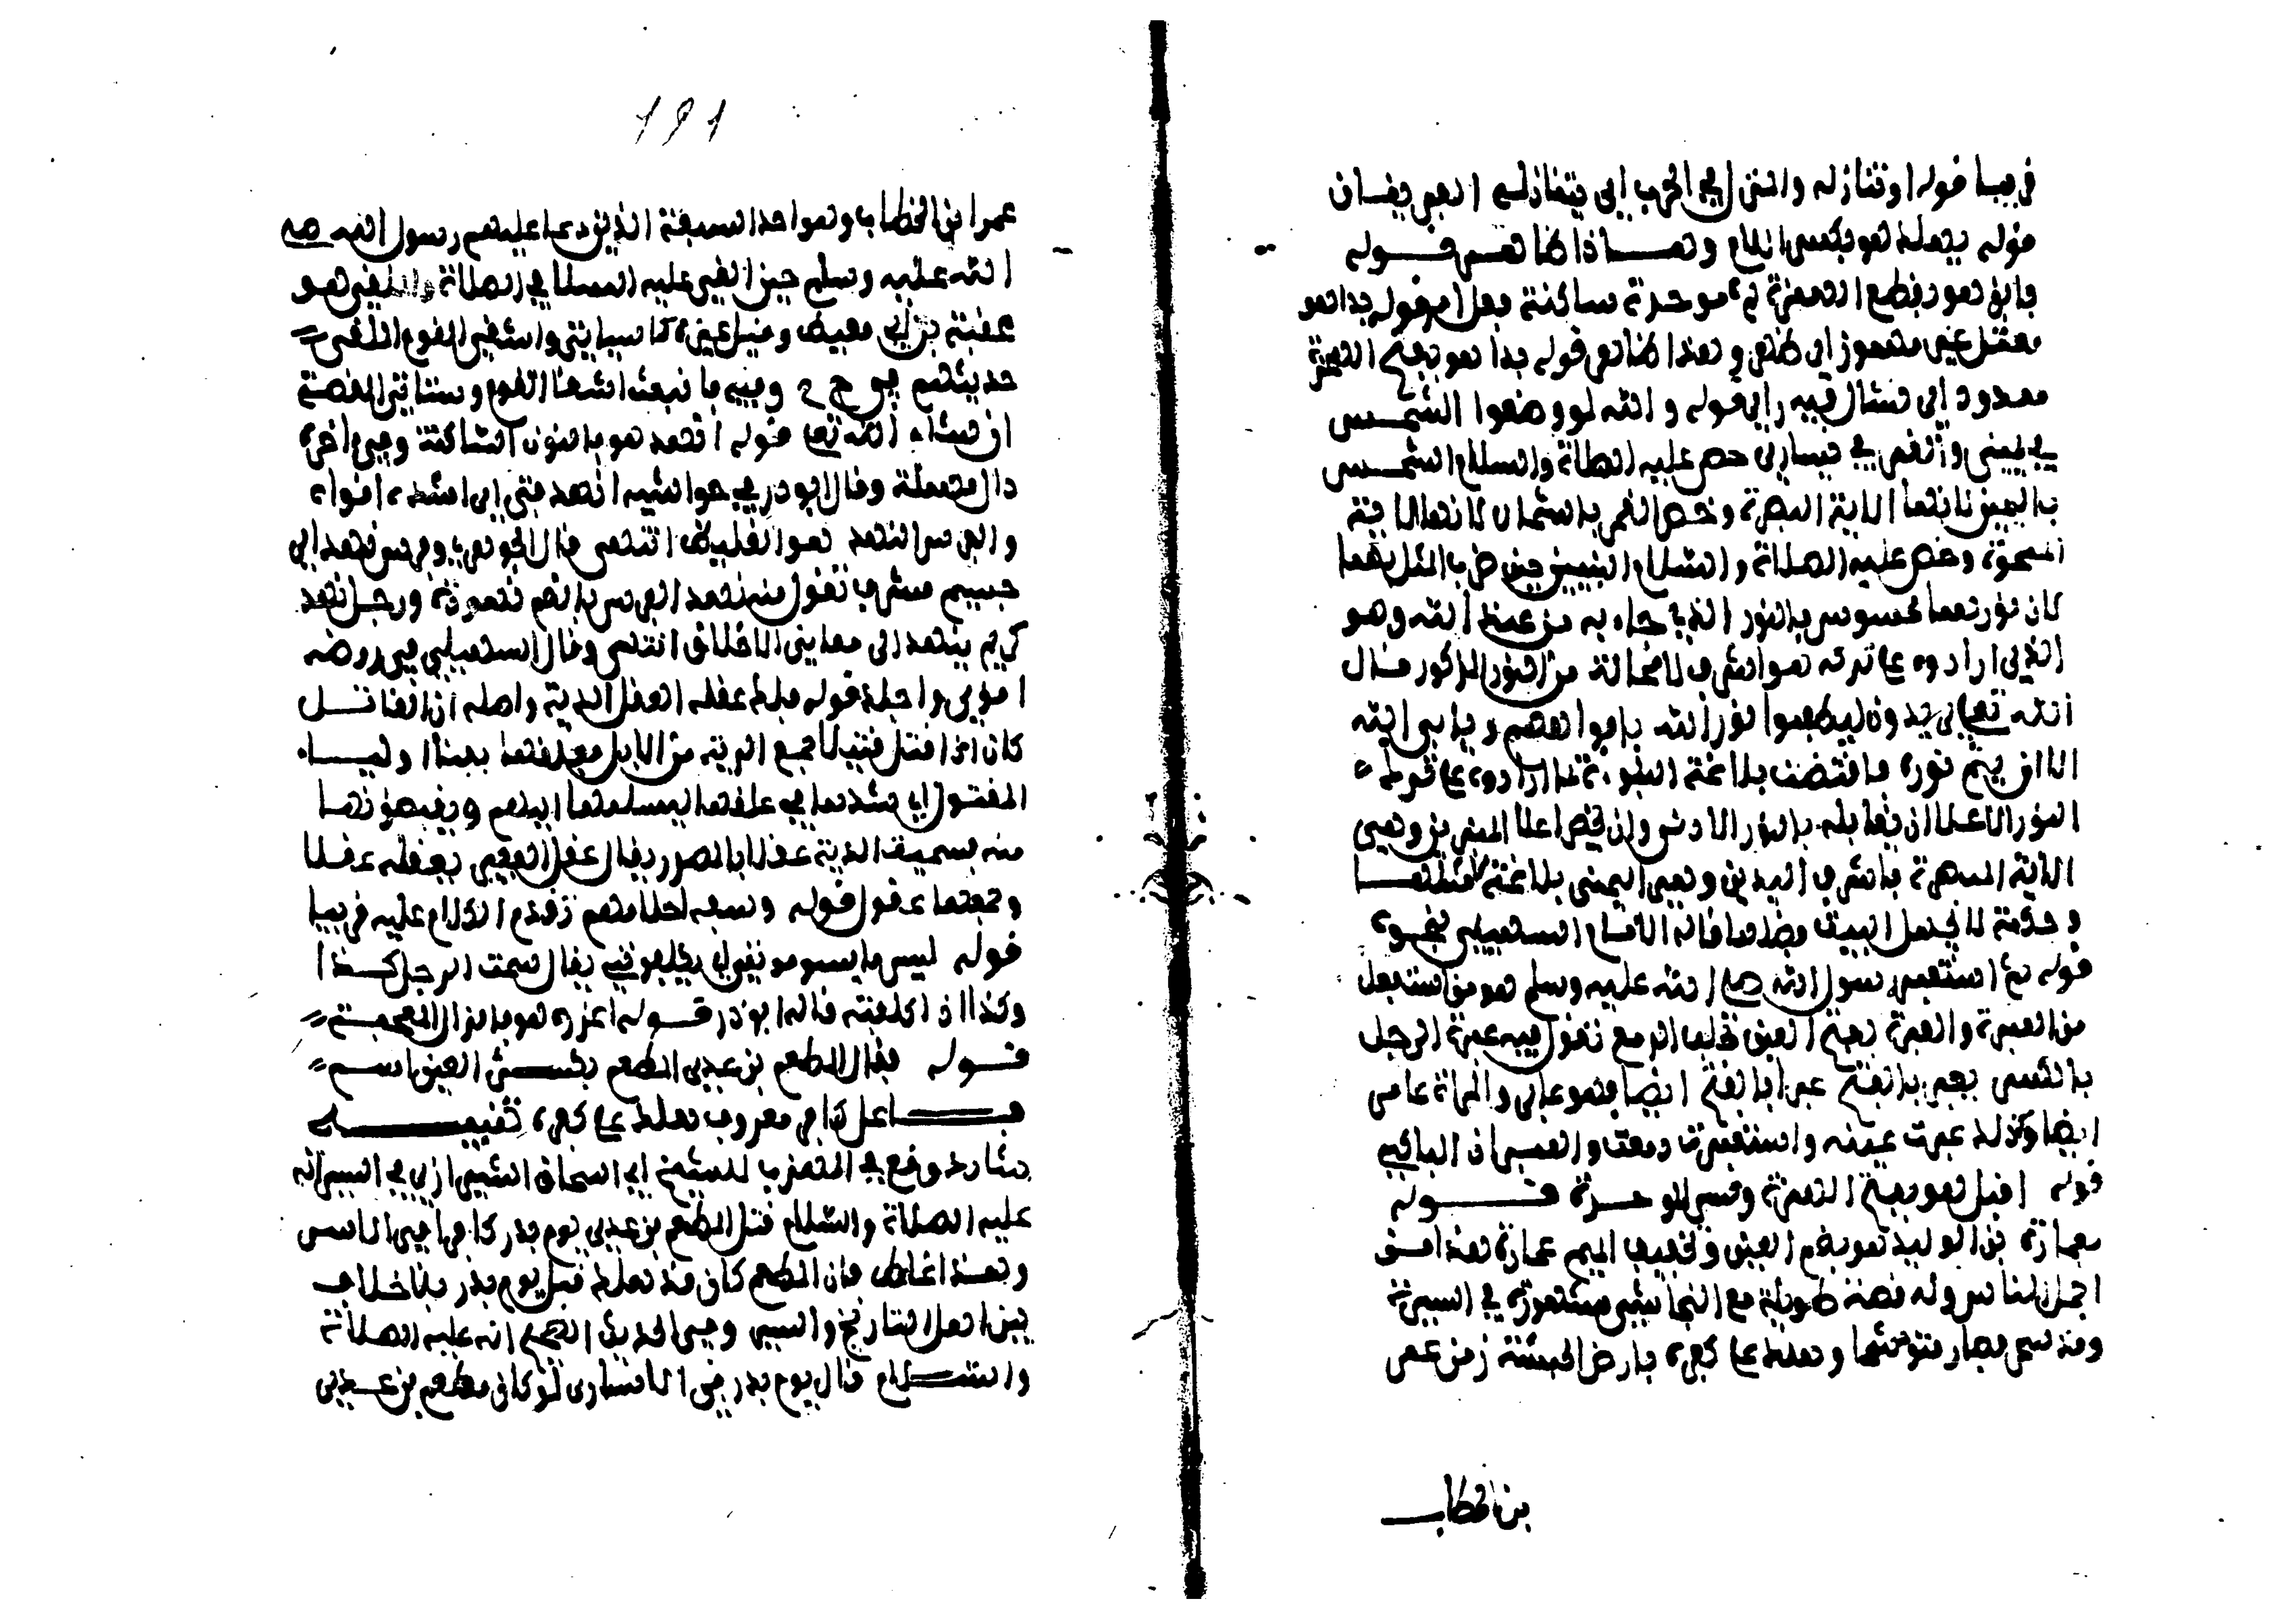 قريبا قوله او ننازله والنزال في الحرب ان يتنازل الفريقان
قوله يهلك هو بكسر اللام وهذا ظاهر قوله
فابق هو بقطع الهمزة ثم موحدة ساكنة فعل امر قوله بدا هو
معتل غير مهموز اي ظهر وهذا ظاهر قوله بدا هو بفتح الهمزة
ممدود اي نشا له فيه راي قوله والله لو وضعوا الشمس
في يميني والقمر في يساري خص عليه الصلاة والسلام الشمس
باليمين لانها الاية المبصرة وخص القمر بالشمال لانها الاية
الممحوة وخص عليه الصلاة والسلام النيرين حين ضرب المثل بهما
لان نورهما محسوس بالنور الذي جاء به من عند الله وهو
الذي ارادوه على تركه هو اشرف لا محالة من النور المذكور قال
الله تعالى يريدون ليطفئوا نور الله بافواههم ويابى الله
الا ان يتم نوره فاقتضت بلاغة النبوءة لما ارادوه على ترك
النور الاعلا ان يقابله بالنور الادنى وان يخص اعلا النيرين وهي
الاية المبصرة باشرف اليدين وهي اليمنى بلاغة لا مثلها
وحكمة لا يجهل اللبيب فضلها قاله الامام السهيلي بنحوه
قوله ثم استعبر رسول الله صلى الله عليه وسلم هو من استفعل
من العبرة والعبرة بفتح العين تحلب الدمع تقول فيه عبر الرجل
بالكسر يعبر بالفتح عبرا بالفتح ايضا فهو عابر والمراة عابر
ايضا وكذلك عبرت عينه واستعبرت دمعت والعبران الباكي
قوله اقبل هو بفتح الهمزة وكسر الموحدة قوله
عمارة بن الوليد هو بضم العين وتخفيف الميم عمارة هذا من
اجمل الناس وله قصة طويلة مع النجاشي مشهورة في السيرة
وقد سحر فصار متوحشا وهلك على كفره بارض الحبشة زمن عمر
بن الخطاب
١٩١
عمر ابن الخطاب وهو احد السبعة الذين دعا عليهم رسول الله صلى
الله عليه وسلم حين القي عليه السلا في الصلاة والملقي هو
عقبة بن ابي معيط وقيل غيره كما سياتي واشقى القوم الملقى
حديثهم في خ م وفيه فانبعث اشقا القوم وستاتي القصة
ان شاء الله تعالى قوله انهد هو بالنون الساكنة وفي اخره
دال مهملة وقال ابو ذر في حواشيه انهد فتى اي اشده واقواه
والفرس النهد هو الغليظ انتهى قال الجوهري وفرس نهد اي
جسيم مشرف تقول منه نهد الفرس بالضم نهودة ورجل نهد
كريم ينهد الى معالي الاخلاق انتهى وقال السهيلي في روضه
اقوى واجلد قوله فلك عقله العقل الدية واصله ان القاتل
كان اذا قتل قتيلا جمع الدية من الابل فعقلها بفناء اولياء
المقتول اي شدها في عقلها ليسلمها اليهم ويقبضونها
منه فسميت الدية عقلا بالمصدر يقال عقل البعير يعقله عقلا
وجمعها عقول قوله وسفه احلامهم تقدم الكلام عليه قريبا
قوله لبيس ما تسومونني اي تكلفونني يقال سمت الرجل كذا
وكذا اذا كلفته قاله ابو ذر قوله اغذوه هو بالذال المعجمة
قوله فقال المطعم بن عدي المطعم بكسر العين اسم
فاعل كافر معروف هلك على كفره تنبيه
شارد وقع في المهذب للشيخ ابي اسحاق الشيرازي في السير انه
عليه الصلاة والسلام قتل المطعم بن عدي يوم بدر كافرا في الاسرى
وهذا غلط فان المطعم كان قد هلك قبل يوم بدر بلا خلاف
بين اهل التاريخ والسير وفي الحديث الصحيح انه عليه الصلاة
والسلام قال يوم بدر في الاسارى لو كان مطعم بن عدي